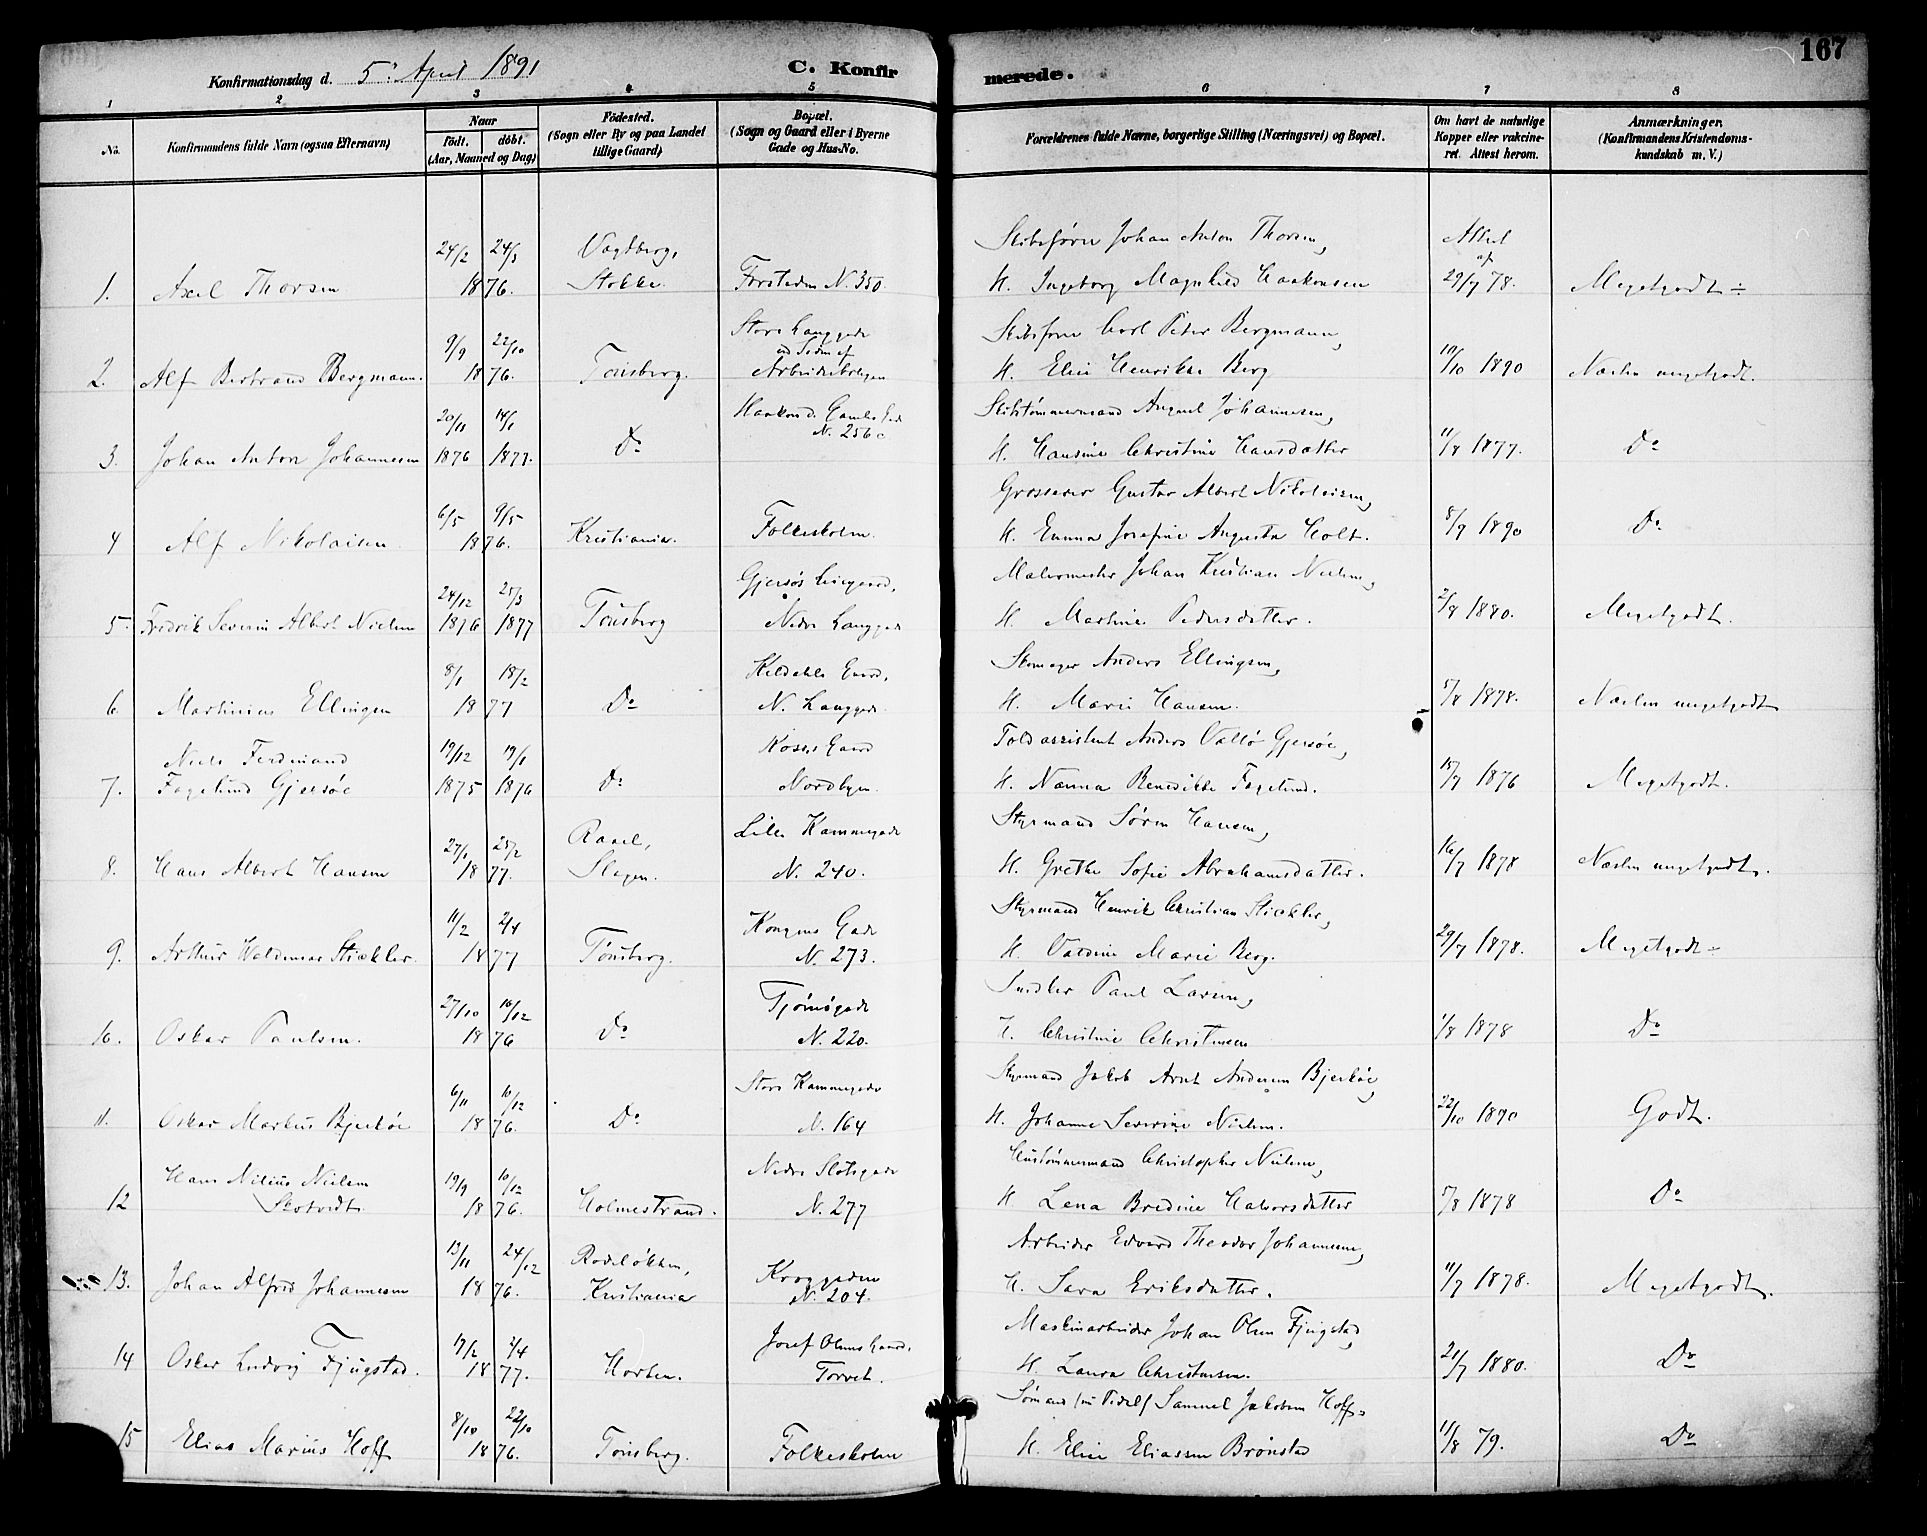 167
Konfirmationsdag d. 5' April 1891
C. Konfirmerede.
1 2 3 4 5 6 7 8
No.
Konfirmandens fulde Navn (ogsaa Efternavn)
Naar
født. døbt.
(Aar, Maaned og Dag)
Fødested.
(Sogn eller By og paa Landet
tillige Gaard)
Bopæl.
(Sogn og Gaard eller i Byerne
Gade og Hus-No.
Forældrenes fulde Navne, borgerlige Stilling (Næringsvei) og Bopæl.
Om havt de naturlige
Kopper eller vakcine-
ret. Attest herom.
Anmærkninger.
(Konfirmandens Kristendoms-
kundskab m. V.)
24/2 24/3 Vagtberg, Skibsfører Johan Anton Thorsen, Attest af
1. Axel Thorsen 1876. Stokke. N. 350. H. Ingeborg Magnhild Haakonsen 29/7 78. Megetgodt ÷
9/9 22/10 Store Langgade ved Siden af Skibsfører Carl Peter Bergmann,
2. Alf Bertrand Bergmann. 1876. Tønsberg. Arbeiderboligen H. Elise Henrikke Berg 10/10 1890 Næsten megetgodt.
20/11 14/1 Haakon d. Gamles Gade Skibstømmermand August Johannesen,
3. Johan Anton Johannesen 1876 1877. Do N. 256c H. Hansine Christine Hansdatter 11/8 1877. Do
6/5 9/5 Grosserer Gustav Albert Nikolaisen,
4 Alf Nikolaisen. 1876. Kristiania. Folkeskolen. H. Emma Josefine Augusta Holt. 8/9 1890 Do
24/12 25/3 Gjersøs Leiegaard, Malermester Johan Kristian Nielsen,
5. Fredrik Severin Albert Nielsen 1876 1877 Tønsberg Nedre Langgade H. Martine Pedersdatter. 2/8 1880. Megetgodt.
8/1 18/2 Keldahls Gaard, Skomager Anders Ellingsen,
6. Martinius Ellingsen 1877 Do N. Langgade. H. Marie Hansen. 5/8 1878. Næsten megetgodt
Niels Ferdinand 19/12 19/1 Gaard Toldassistent Anders Vallø Gjersøe,
7. Fagelund Gjersøe 1875 1876 Do Nordbyen. H. Nanna Benedikte Fagelund. 15/7 1876 Megetgodt.
27/1 25/2 Rael, Lille Kammegade Styrmand Søren Hansen,
8. Hans Albert Hansen 1877. Slagen. N. 240. H. Grethe Sofie Abrahamsdatter. 16/7 1878 Næsten megetgodt.
11/2 2/4 Kongens Gade Styrmand Henrik Christian Stickler,
9. Arthur Waldemar Stickler. 1877 Tønsberg. N. 273. H. Valdine Marie Berg. 29/7 1878. Megetgodt ÷
27/10 16/12 Tjømøgade Snedker Paul Larsen,
10. Oskar Paulsen. 1876 Do N. 220. H. Christine Christensen 1/8 1878 Do
6/11 10/12 Store Kammegade Styrmand Jakob Arnt Andersen Bjerkøe,
11. Oskar Markus Bjerkøe 1876. Do N. 164 H. Johanne Severine Nielsen. 22/10 1890 Godt.
Hans Nilius Nielsen 19/9 10/12 Nedre Slotsgade Hustømmermand Christopher Nielsen,
12 Skotvedt. 1876. Holmestrand. N. 277 H. Lena Bredine Halvorsdatter 5/8 1878 Do
13/11 24/12 Rodeløkken, Arbeider Edvard Theodor Johannesen,
13. Johan Alfred Johannesen 1876. Kristiania Kroggaden N. 204. H. Sara Eriksdatter. 11/7 1878. Megetgodt.
19/2 2/4 Josef Olsens Gaard, Maskinarbeider Johan Olsen Fjugstad
14 Oskar Ludvig Fjugstad. 1877. Horten. Torvet. H. Laura Christensen. 21/7 1880. Do
8/10 22/10 Sømand Samuel Jakobsen Hoff,
15 Elias Marius Hoff 1876. Tønsberg. Folkeskolen H. Elise Eliassen Brønstad 11/8 79. Do